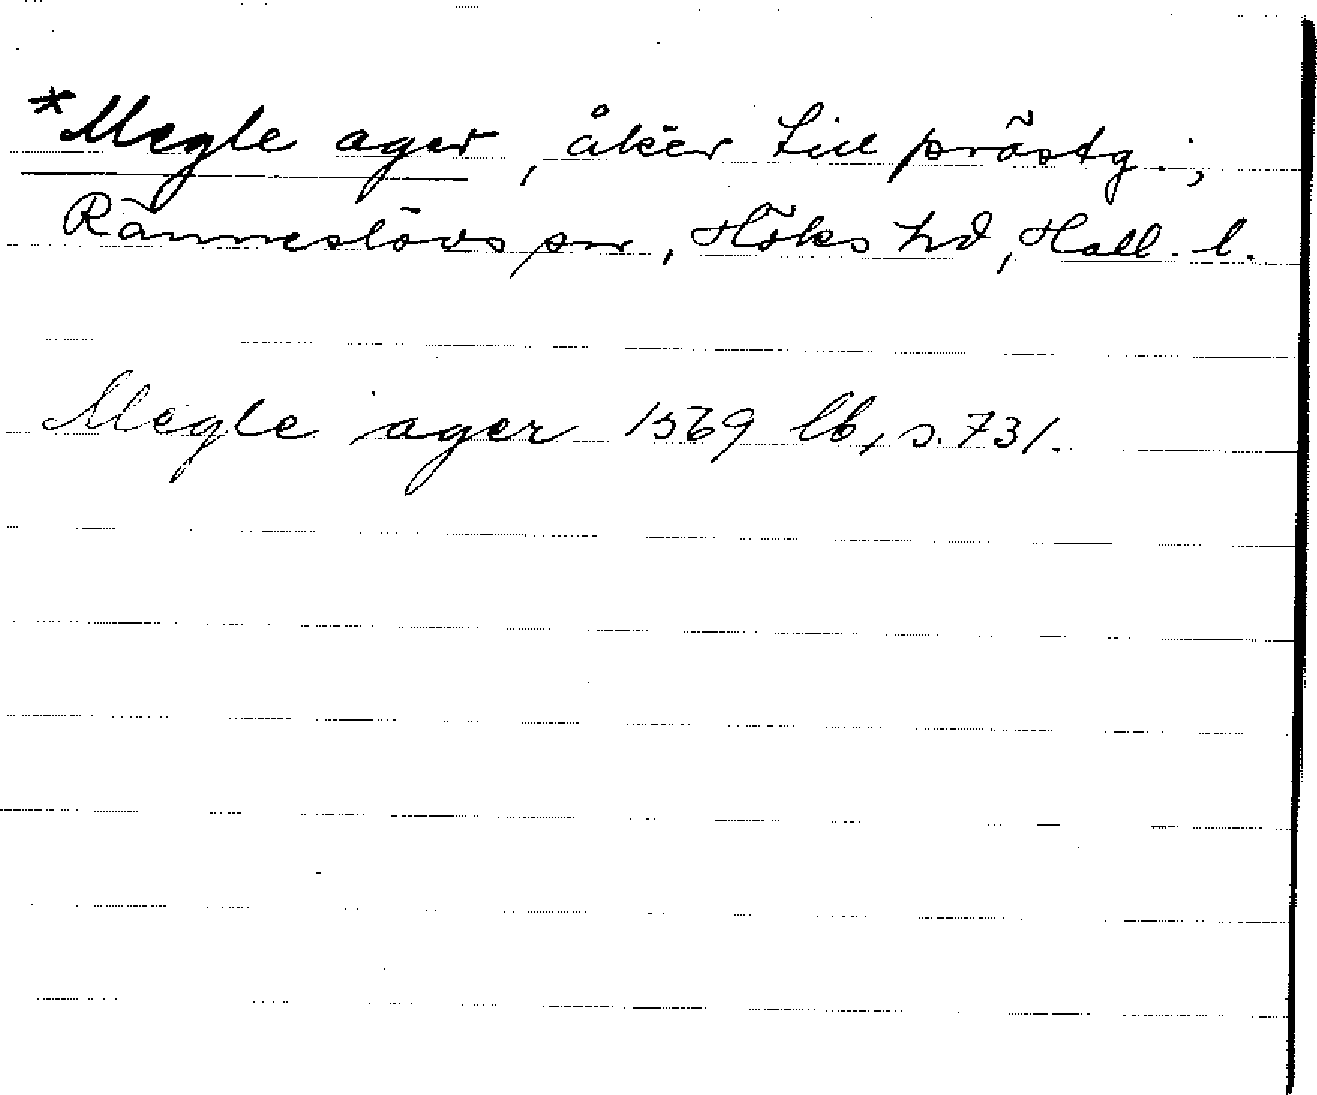 *Megle ager, åker till prästg.;
Ränneslövs sn, Höks hd, Hall. l.
Megle ager 1569 lb, s. 731.